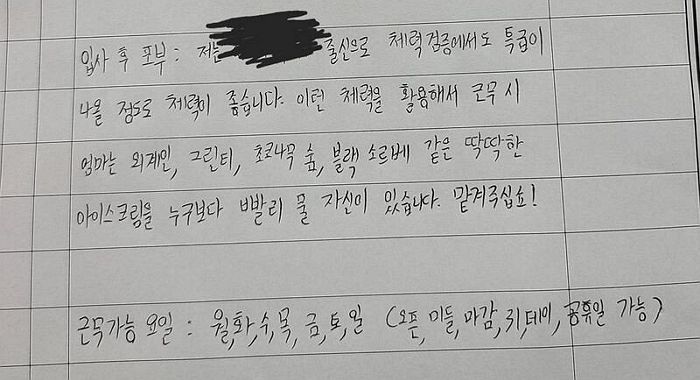 입사 후 포부 : 저는 출신으로 체력검증에서도 특급이
나올 정도로 체력이 좋습니다. 이런 체력을 활용해서 근무 시
엄마는 외계인, 그린티, 초코나무 숲, 블랙 소르베 같은 딱딱한
아이스크림을 누구보다 빨리 풀 자신이 있습니다. 맡겨주십쇼!
근무가능 요일 : 월,화,수,목,금,토,일 (오픈,미들,마감,크리데이,공휴일 가능)